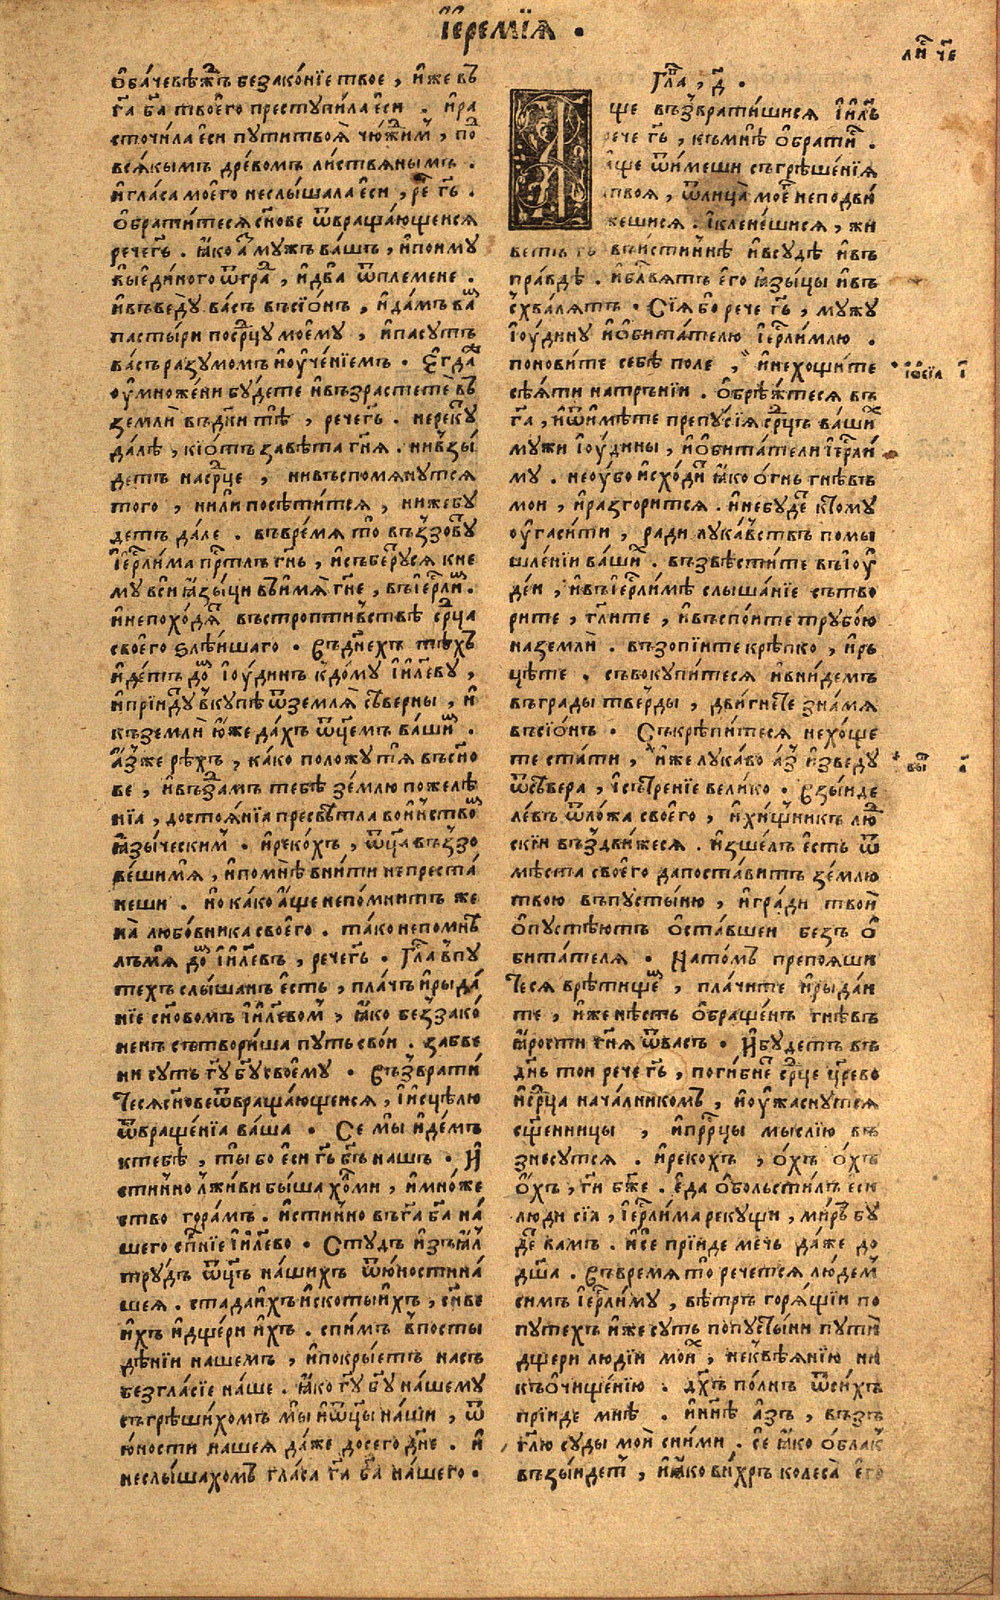 І҆еремїѧ .
ли҆ чє҃
О҆ба́чевѣ́ждь беззако́нїе твое , и҆же въ
г҃а б҃а твоего̀ преступи́ла еси . и҆ра
сточи́ла еси пути̑твоѧ̀ чю́жимъ , по
всѧ́кымъ дре́вомъ ли́ствѧнымъ .
и҆гла́са моего̀ неслы́шала еси , ре҃ г҃ь .
О҆брати́тесѧ сн҃ове ѿвраща́ющеисѧ
рече́г҃ь . ꙗ҆́ко а҆́ мужъ ва́шъ , и҆поиму
вы̀еди́ного ѿгра , и҆два̀ ѿплемене .
и҆въведу̀ ва́съ въсїо́нъ , и҆да́мъ ва́
пасты́ри посрⷣцу моему̀ , и҆пасу́тъ
ва́съ ра́зумомъ и҆оуче́нїемъ . Егда̀
оумноже́ни бу́дете и҆възрасте́те въ
землѝ въдн҃и ты́ѣ , рече́г҃ь . нереку́
да́лѣ , кїо́тъ завѣ́та гн҃ѧ . нивзы́
детъ насрⷣце , нивъспомѧ́нутсѧ
того̀ , нили̑ посѣти́тсѧ , нижебу́
детъ да́ле . въвре́мѧ то̀ възову́
І҆ерⷭ҇ли́ма прⷭ҇тлъ гн҃ь , и҆събе́русѧ кне
му̀ вси̑ ꙗ҆зы́ци въи҆мѧ гн҃е , въі҆ерⷭ҇ли́м .
и҆непохо́дѧ въстропти́вствѣ срⷣца
своего̀ ѕлѣ́ишаго . Въдн҃ехъ тѣ́хъ
и҆де́тъ до́м І҆оу́динъ кдо́му І҆и҃леву ,
и҆прїиду́ вку́пѣ ѿземлѧ̀ сѣ́верны , и҆
къземлѝ ю҆́же да́хъ ѿц҃емъ ва́шим .
А҆́зъже рѣ́хъ , ка́ко положу̀ тѧ въсн҃о
ве , и҆въза́мъ тебѣ̀ зе́млю пожелѣ́
нїа , достоѧ́нїа пресвѣ́тла во́иньство
ꙗ҆зы́ческим . и҆реко́хъ , ѿц҃а възо
ве́шимѧ , и҆помнѣ̀ вни́ти непреста́
неши . но ка́ко а҆́ще непо́мнитъ же
на̀ любо́вника своего̀ . та́ко непо́мнѣ
лъмѧ̀ до́м І҆и҃левъ , рече́г҃ь . Гла́ впу
те́хъ слы́шанъ е҆сть , пла́чъ и҆рыда́
нїе сн҃овомъ І҆и҃левом , ꙗ҆́ко беззако́
ненъ сътвори́ша путь сво́и . забве
ни су́ть г҃у б҃у своему . Възврати́
тесѧсн҃овеѿвраща́ющеисѧ , и҆исцѣлю
ѿвраще́нїа ва́ша . Се мы̀ и҆де́мъ
ктебѣ̀ , ты̀ бо е҆си г҃ь б҃ъ на́шъ . И҆
сти́нно лжи́ви бы́ша хо́лми , и҆мно́же
ство гора́мъ . и҆сти́нно въг҃а б҃а на́
шего сп҃нїе І҆и҃лево . Сту́дъ и҆зъꙗ҆л
тру́дъ ѿц҃ъ на́шихъ ѿю҆ностина́
шеѧ . стада̀и҆хъи҆скоты̀и҆хъ , сн҃ве
и҆хъ и҆дще́ри и҆хъ . спи́мъ впосты
дѣ́нїи на́шемъ , и҆покры́етъ на́съ
безгла́сїе на́ше . ꙗ҆́ко г҃у б҃у на́шему
съгрѣши́хомъ мы̀ и҆ѿц҃ы на́ши , ѿ
ю҆ности на́шеѧ да́же досего̀ дн҃е . и҆
неслы́шахомъ гла́са г҃а б҃а на́шего .
Гла҃ , д҃ .
А҆
ще възврати́шисѧ І҆и҃ль
рече г҃ь , къмнѣ̀ обрати́ .
а҆ще ѿи́меши съгрѣше́нїѧ
твоѧ , ѿлица̀ моѐ неподви́
жешисѧ . И҆клене́шисѧ , жи
ветъ г҃ь въи́стиннѣ и҆всудѣ̀ и҆въ
пра́вдѣ . и҆бл҃вѧтъ е҆го̀ ꙗ҆зы́цы и҆въ
схва́лѧтъ . Сїѧ́ бо рече г҃ь , мужу
І҆оу́дину и҆о҆бита́телю І҆ерⷭ҇ли́млю .
понови́те себѣ̀ по́ле , и҆нехощи́те
сѣ́ѧти натръ́нїи . О҆брѣ́жтесѧ въ
г҃а , и҆ѿимѣ́те препу́сїѧ срⷣцъ ва́ших
мужи І҆оу́дины , и҆о҆бита́тели І҆ерⷭ҇ли́
му . неоу́бо и҆схо́ди ꙗ҆́ко о́гнь гнѣ́въ
мои , и҆разгори́тсѧ . и҆небу́де кто́му
оу҆гаси́ти , ра́ди лука́вствъ помы
шле́нїи ва́ших . възвѣсти́те въІ҆оу́
деи , и҆въІ҆ерⷭ҇ли́мѣ слы́шанїе сътво
ри́те , гл҃ите , и҆въспо́ите трубо́ю
наземлѝ . възопі́ите крѣ́пко , и҆рь
цѣ́те . съвокупи́тесѧ и҆вни́демъ
въгра́ды тве́рды , дви́гнете зна́мѧ
въсїо́нъ . Съкрѣпи́тесѧ нехо́ще
те ста́ти , и҆же лука́во а҆́з и҆зведу́
ѿсѣ́вера , и҆стре́нїе вели́ко . Взы́иде
ле́въ ѿло́жа своего̀ , и҆хи́щникъ лю
скїи въздви́жесѧ . и҆зше́лъ е҆сть ѿ
мѣ́ста своего̀ дапоста́витъ зе́млю
твою въпусты́ню , и҆гра́ди твои
о҆пустѣ́ютъ о҆ста́вшеи безъ о҆
бита́телѧ . На́томъ препоѧ́ши
тесѧ врѣ́тище , пла́чите и҆рыда́и
те , и҆же нѣ́сть О҆браще́нъ гнѣ́въ
ꙗ҆́рости гн҃ѧ ѿва́съ . И҆будетъ въ
дн҃ь тои рече г҃ь , поги́бне срⷣце цр҃ево
и҆срⷣца нача́лникомъ , и҆оу҆жасну́тсѧ
сщ҃е́нницы , и҆прⷪ҇рцы мы́слїю въ
знесу́тсѧ . и҆реко́хъ , о҆́хъ о҆́хъ
о҆́хъ , г҃и б҃же . е҆да О҆больсти́лъ е҆си
лю́ди сїа , І҆ерⷭ҇ли́ма реку́щи , ми́ръ бу́
де ва́мъ . и҆се́ прїиде ме́чь да́же до
дш҃а . Въвре́мѧ то̀ рече́тсѧ лю́дем
симъ І҆ерⷭ҇ли́му , вѣ́тръ горѧ́щїи по
путе́хъ и҆же су́ть попу́стыни пути̑
дще́ри лю́дїи мои́х , неквѣ́ѧнїю ни
къо҆чище́нїю . дх҃ъ по́лнъ ѿси́хъ
прїиде мнѣ̀ . и҆нн҃ѣ а҆зъ , възъ
гл҃ю суды̀ мои̑ сни́ми . се ꙗ҆́ко о҆́блак
възы́идет , и҆ꙗ҆́ко ви́хръ колеса̀ его